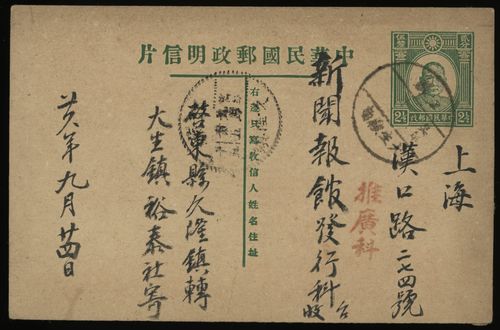 中華民國郵政明信片
2½
2½
中華民國郵政
上海
漢口路二七四號
推廣科
新聞報館發行科台收
右邊只寫收信人姓名住址
啓東縣久隆鎮轉
大生鎮裕泰社寄
廿六年九月廿四日